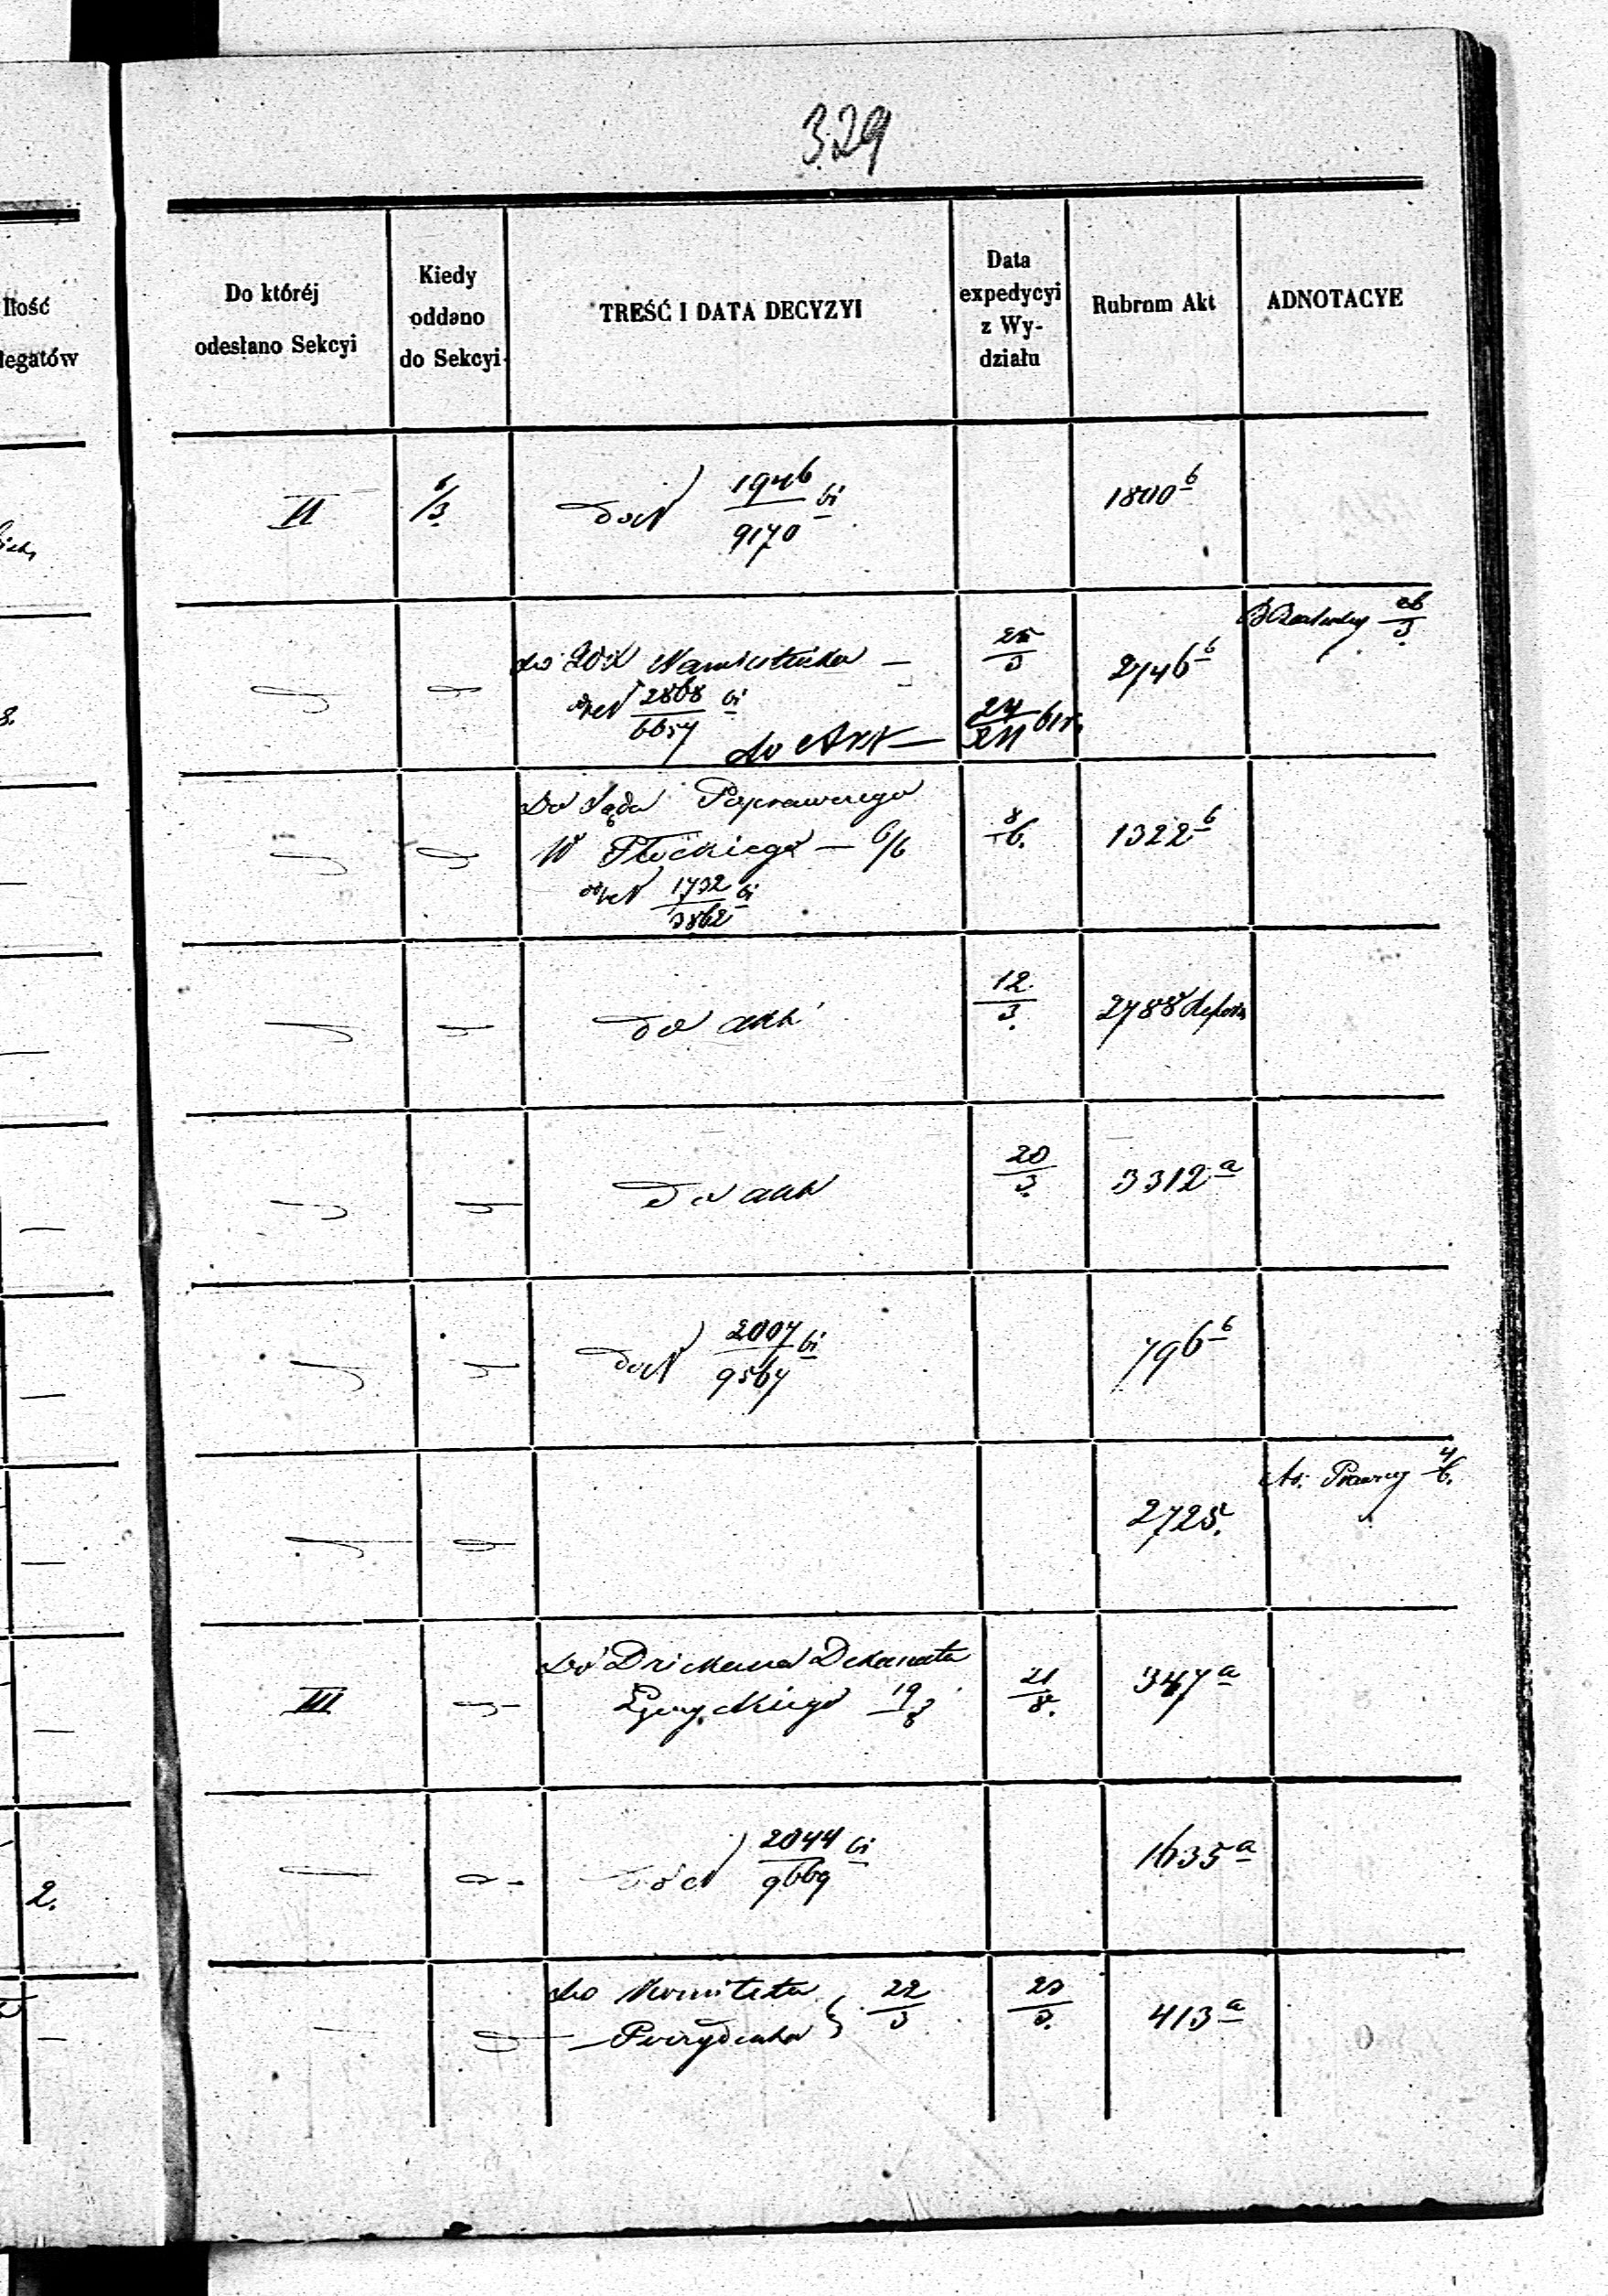 329
Ilość
legatów
Do któréj
odesłano Sekcyi
Kiedy
oddano
do Sekcyi
TREŚĆ I DATA DECYZYI
Data
expedycyi
z Wy-
działu
Rubrum Akt
ADNOTACYE
II
6/3
do N 1946/9170 bi
1800 b
do Namiestnika —
do N 2868/6657 bi
do Akt —
25/3
2746 b
26/3
Do Sądu Poprawczego
W Płockiego — 6/6
do N 1732/3862 bi
8/6.
1322 b
do akt
12/3.
2788
do akt
20/3.
3312 a
do N 2007/9567 bi
796 b
2725.
4/6.
III
do Dziekana Dekanatu
19/8
21/8.
347 a
do N 2044/9669 bi
1635 a
2.
do Komitetu
22/3
23/3.
413 a